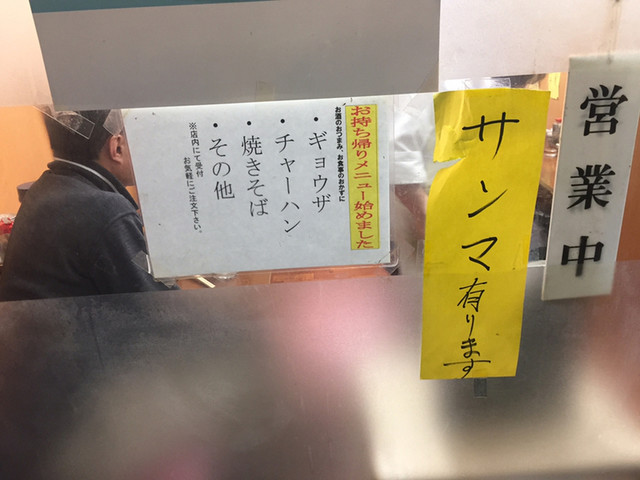 営業中
サンマ有ります
お持ち帰りメニュー始めました
お酒のおつまみ、お食事のおかずに
・ギョウザ
・チャーハン
・焼きそば
・その他
※店内にて受付
お気軽にご注文下さい。